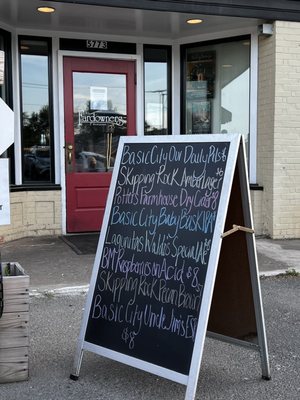 5773
Yardowners
Basic City Our Daily Pils $
Skipping Rock Amber Lager $
Potter's Farmhouse Dry Cider $8
Basic City Baby Bask IPA
Lagunitas Waldo's Special
BM Raspberries on Acid $8
Skipping Rock Pecan Brown
Basic City Uncle Jims
$8